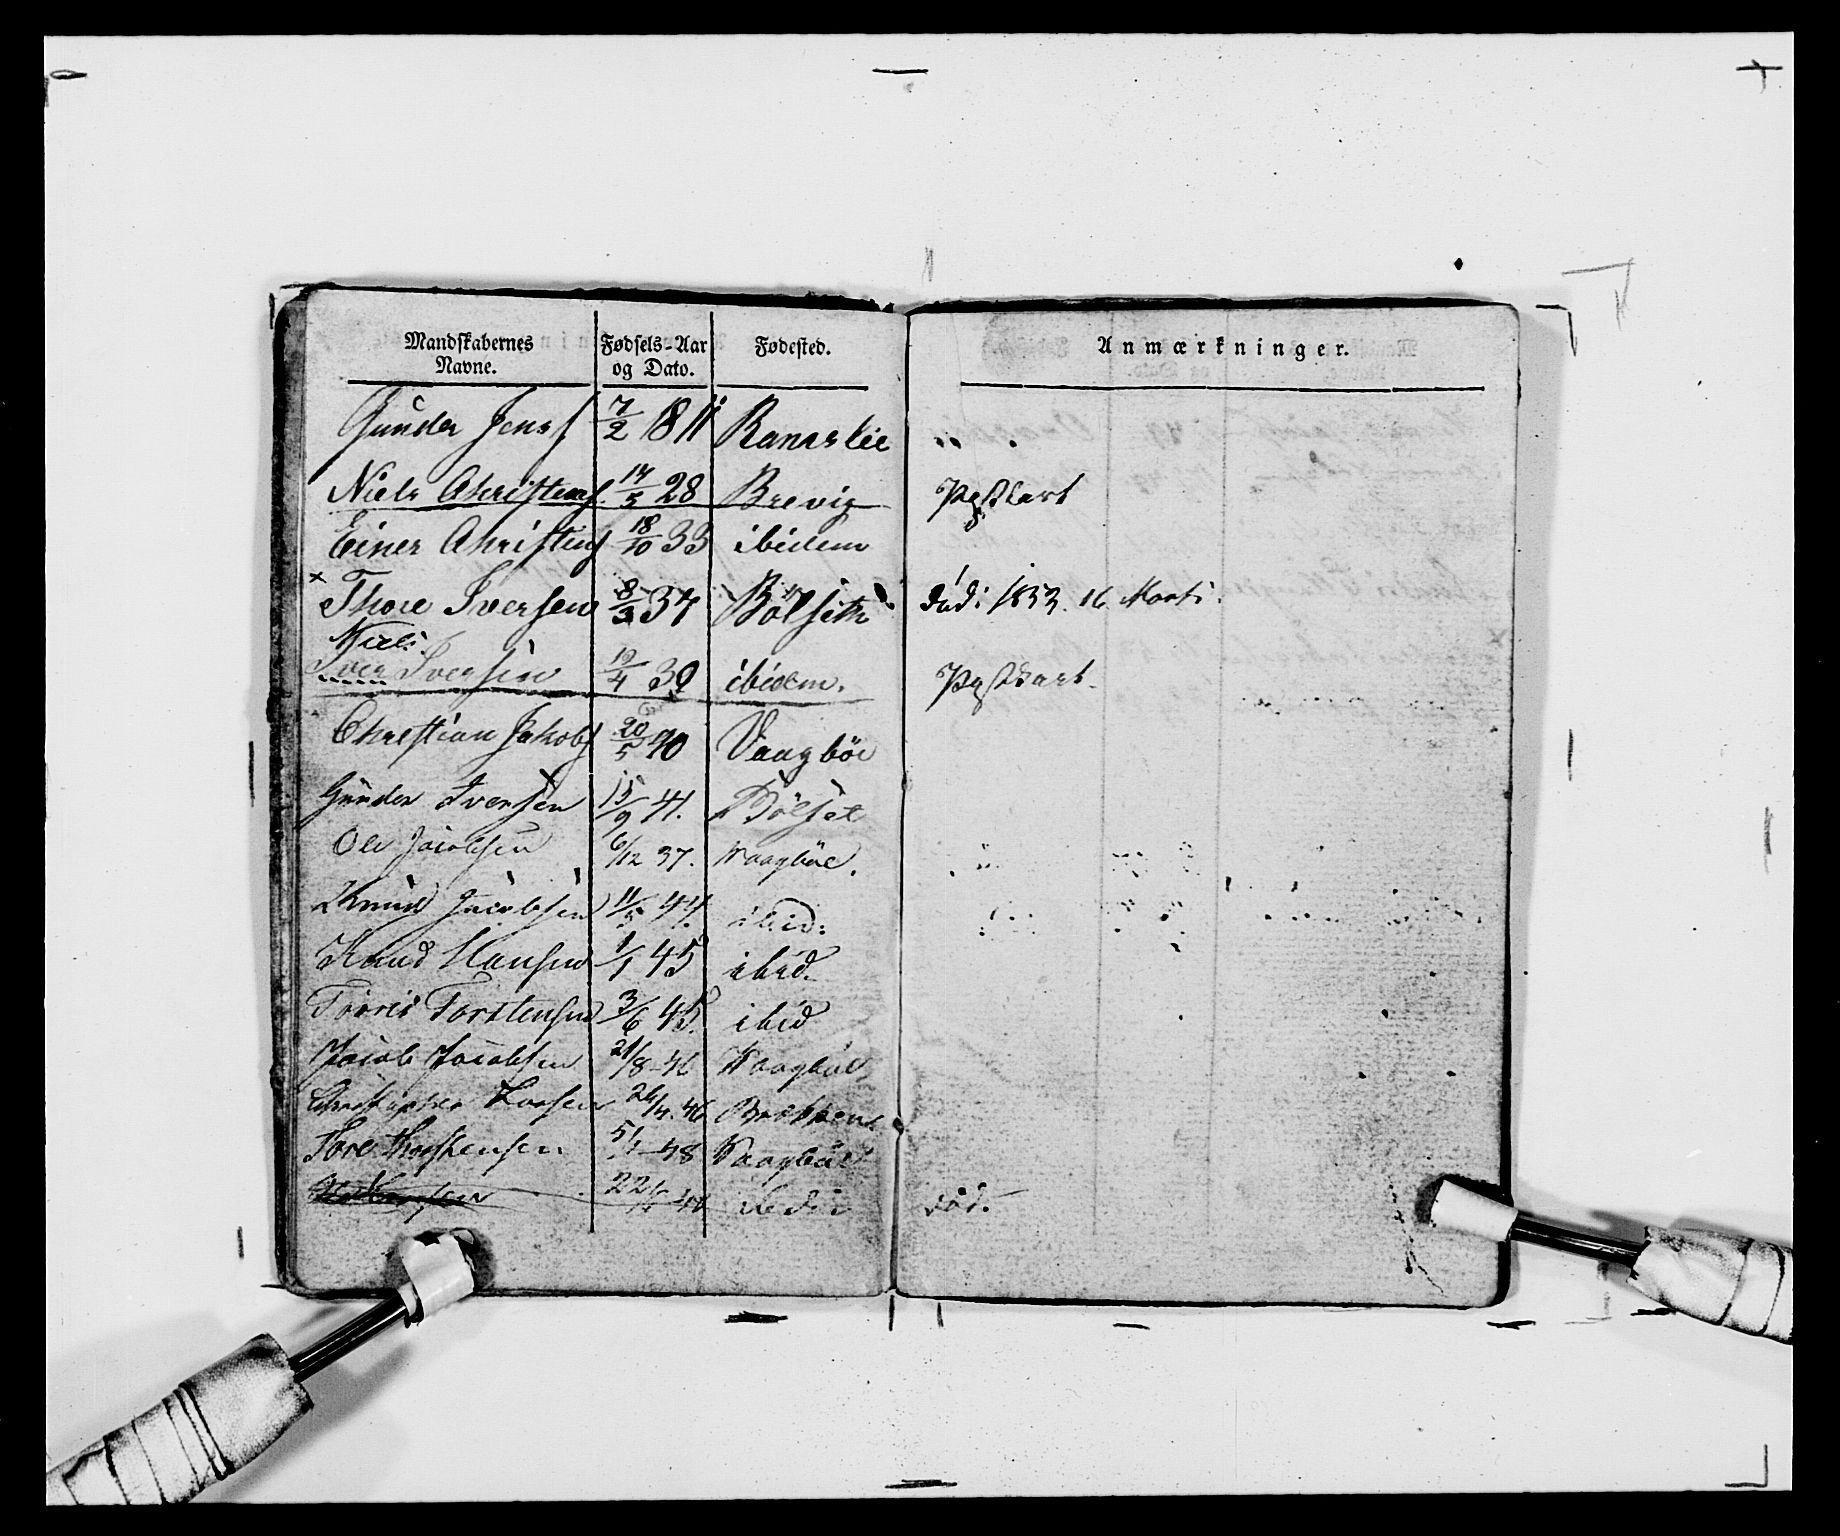 Mandskabernes Navne. Fødsels-Aar og Dato. Fødested. Anmærkninger.
Gunder Jens 7/2 1811 Ramslie
Niels Christens. 14/5 28 Brevig
Einer Christens 18/10 33 ibidem
x Thore Iversen 8/3 37 Bölseth död: 1853. 16 Marts.
Niels
Iver Iversen 19/4 39 ibidem.
Christian Jakobs 20/5 40 Vaagböe
Gunder Iversen 15/9 41. Bölset
Ole Jacobsen 6/12 37. Vaagböe.
Knud Jacobsen 11/5 44. ibid:
Knud Hansen 1/1 45 ibid.
Torris Torstensen 3/6 45. ibid
Jacob Jacobsen 21/8 46 Vaagböe
Christopher 26/4. 46
Tore Thorstensen 5/1 48 Vaagböe
22/ död.